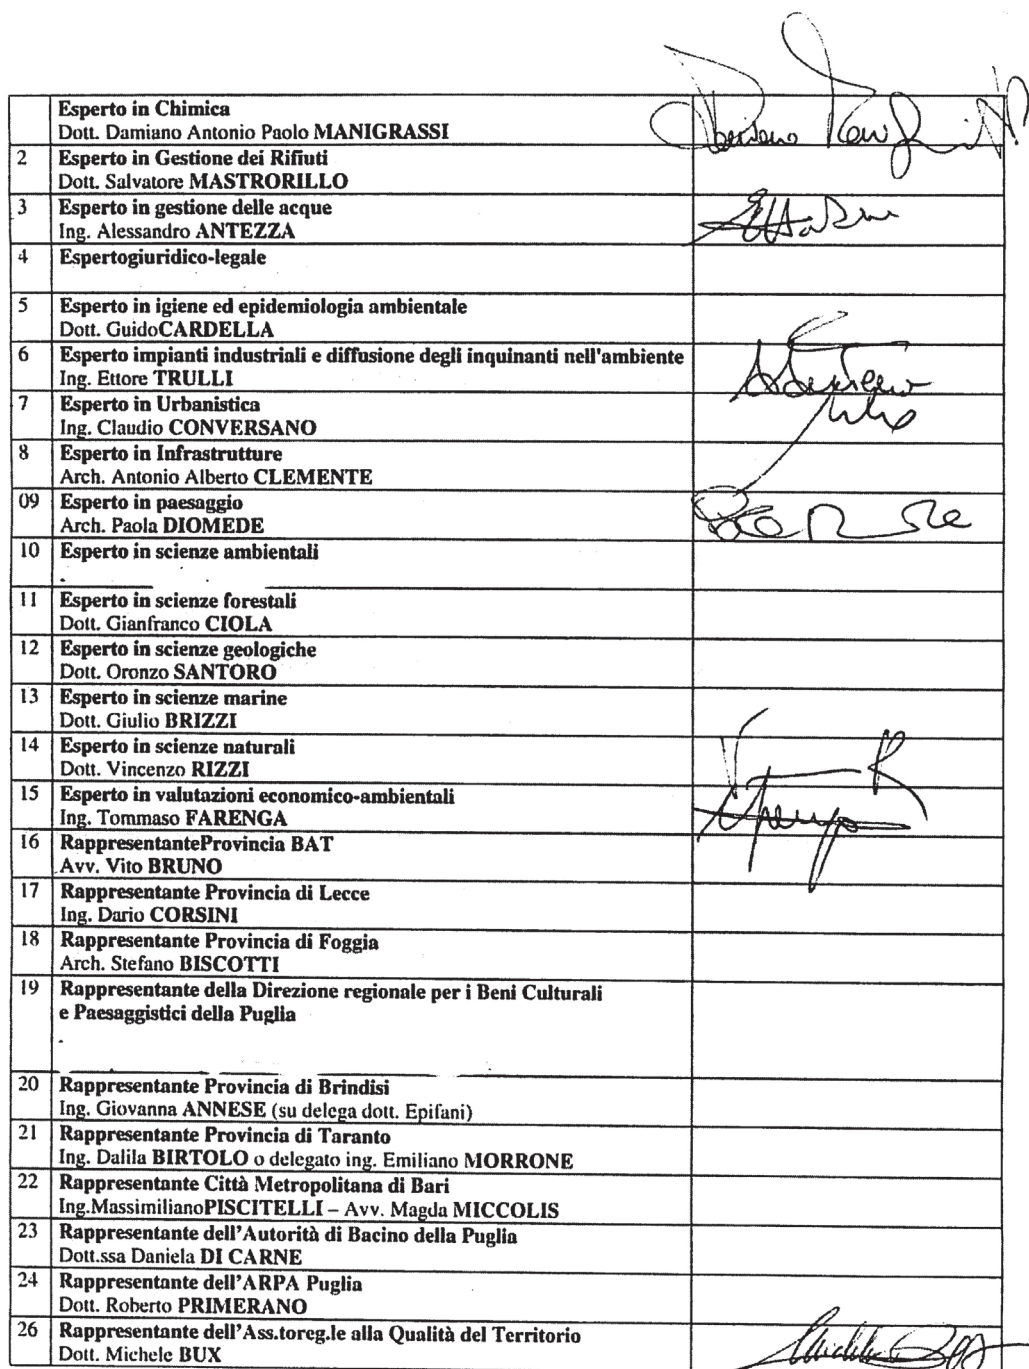 Esperto in Chimica
Dott. Damiano Antonio Paolo MANIGRASSI
2 Esperto in Gestione dei Rifiuti
Dott. Salvatore MASTRORILLO
3 Esperto in gestione delle acque
Ing. Alessandro ANTEZZA
4 Espertogiuridico-legale
5 Esperto in igiene ed epidemiologia ambientale
Dott. GuidoCARDELLA
6 Esperto impianti industriali e diffusione degli inquinanti nell'ambiente
Ing. Ettore TRULLI
7 Esperto in Urbanistica
Ing. Claudio CONVERSANO
8 Esperto in Infrastrutture
Arch. Antonio Alberto CLEMENTE
09 Esperto in paesaggio
Arch. Paola DIOMEDE
10 Esperto in scienze ambientali
11 Esperto in scienze forestali
Dott. Gianfranco CIOLA
12 Esperto in scienze geologiche
Dott. Oronzo SANTORO
13 Esperto in scienze marine
Dott. Giulio BRIZZI
14 Esperto in scienze naturali
Dott. Vincenzo RIZZI
15 Esperto in valutazioni economico-ambientali
Ing. Tommaso FARENGA
16 RappresentanteProvincia BAT
Avv. Vito BRUNO
17 Rappresentante Provincia di Lecce
Ing. Dario CORSINI
18 Rappresentante Provincia di Foggia
Arch. Stefano BISCOTTI
19 Rappresentante della Direzione regionale per i Beni Culturali
e Paesaggistici della Puglia
20 Rappresentante Provincia di Brindisi
Ing. Giovanna ANNESE (su delega dott. Epifani)
21 Rappresentante Provincia di Taranto
Ing. Dalila BIRTOLO o delegato ing. Emiliano MORRONE
22 Rappresentante Città Metropolitana di Bari
Ing.MassimilianoPISCITELLI – Avv. Magda MICCOLIS
23 Rappresentante dell'Autorità di Bacino della Puglia
Dott.ssa Daniela DI CARNE
24 Rappresentante dell'ARPA Puglia
Dott. Roberto PRIMERANO
26 Rappresentante dell'Ass.toreg.le alla Qualità del Territorio
Dott. Michele BUX